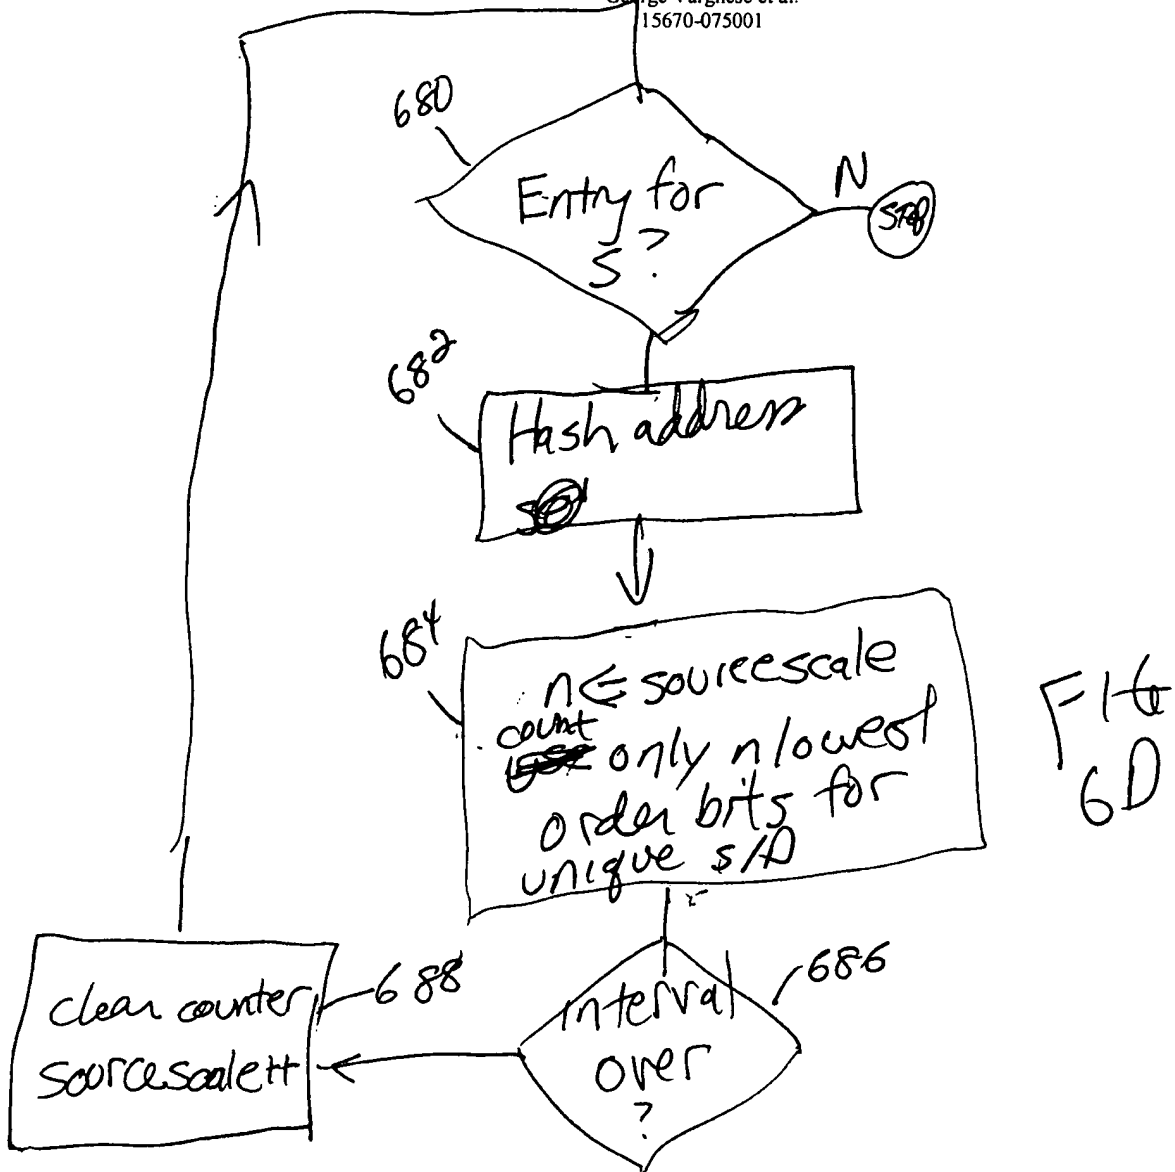 George Varghese et al.
15670-075001
680
Entry for
S?
N
STOP
682
Hash address
684
n ⇐ sourcescale
count
only n lowest
order bits for
unique S/D
FIG
6D
686
interval
over
?
688
clear counter
sourcescale++